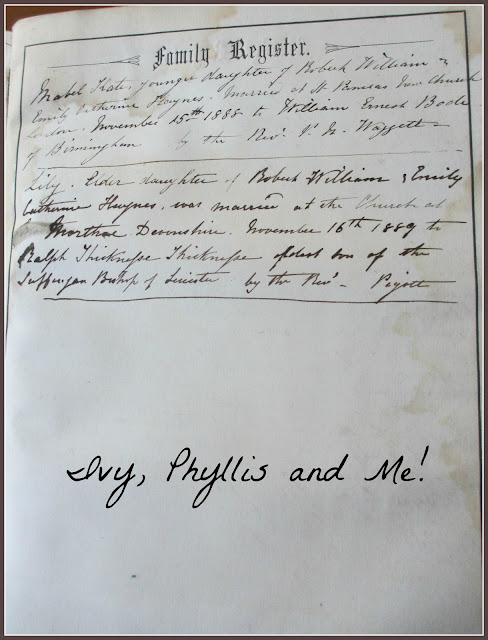 Family Register.
Mabel Kate, younger daughter of Robert William &
Emily Catherine Haynes. Married at St Pancras New Church
London. November 15th 1888 to William Ernest Bode
of Birmingham by the Revd. Waggett
Lily. Elder daughter of Robert William & Emily
Catherine Haynes, was married at the Church at
Morthoe Devonshire. November 16th 1889 to
Ralph Thicknesse Thicknesse eldest son of the
Suffragan Bishop of Leicester by the Revd - Pigott
Ivy, Phyllis and Me!